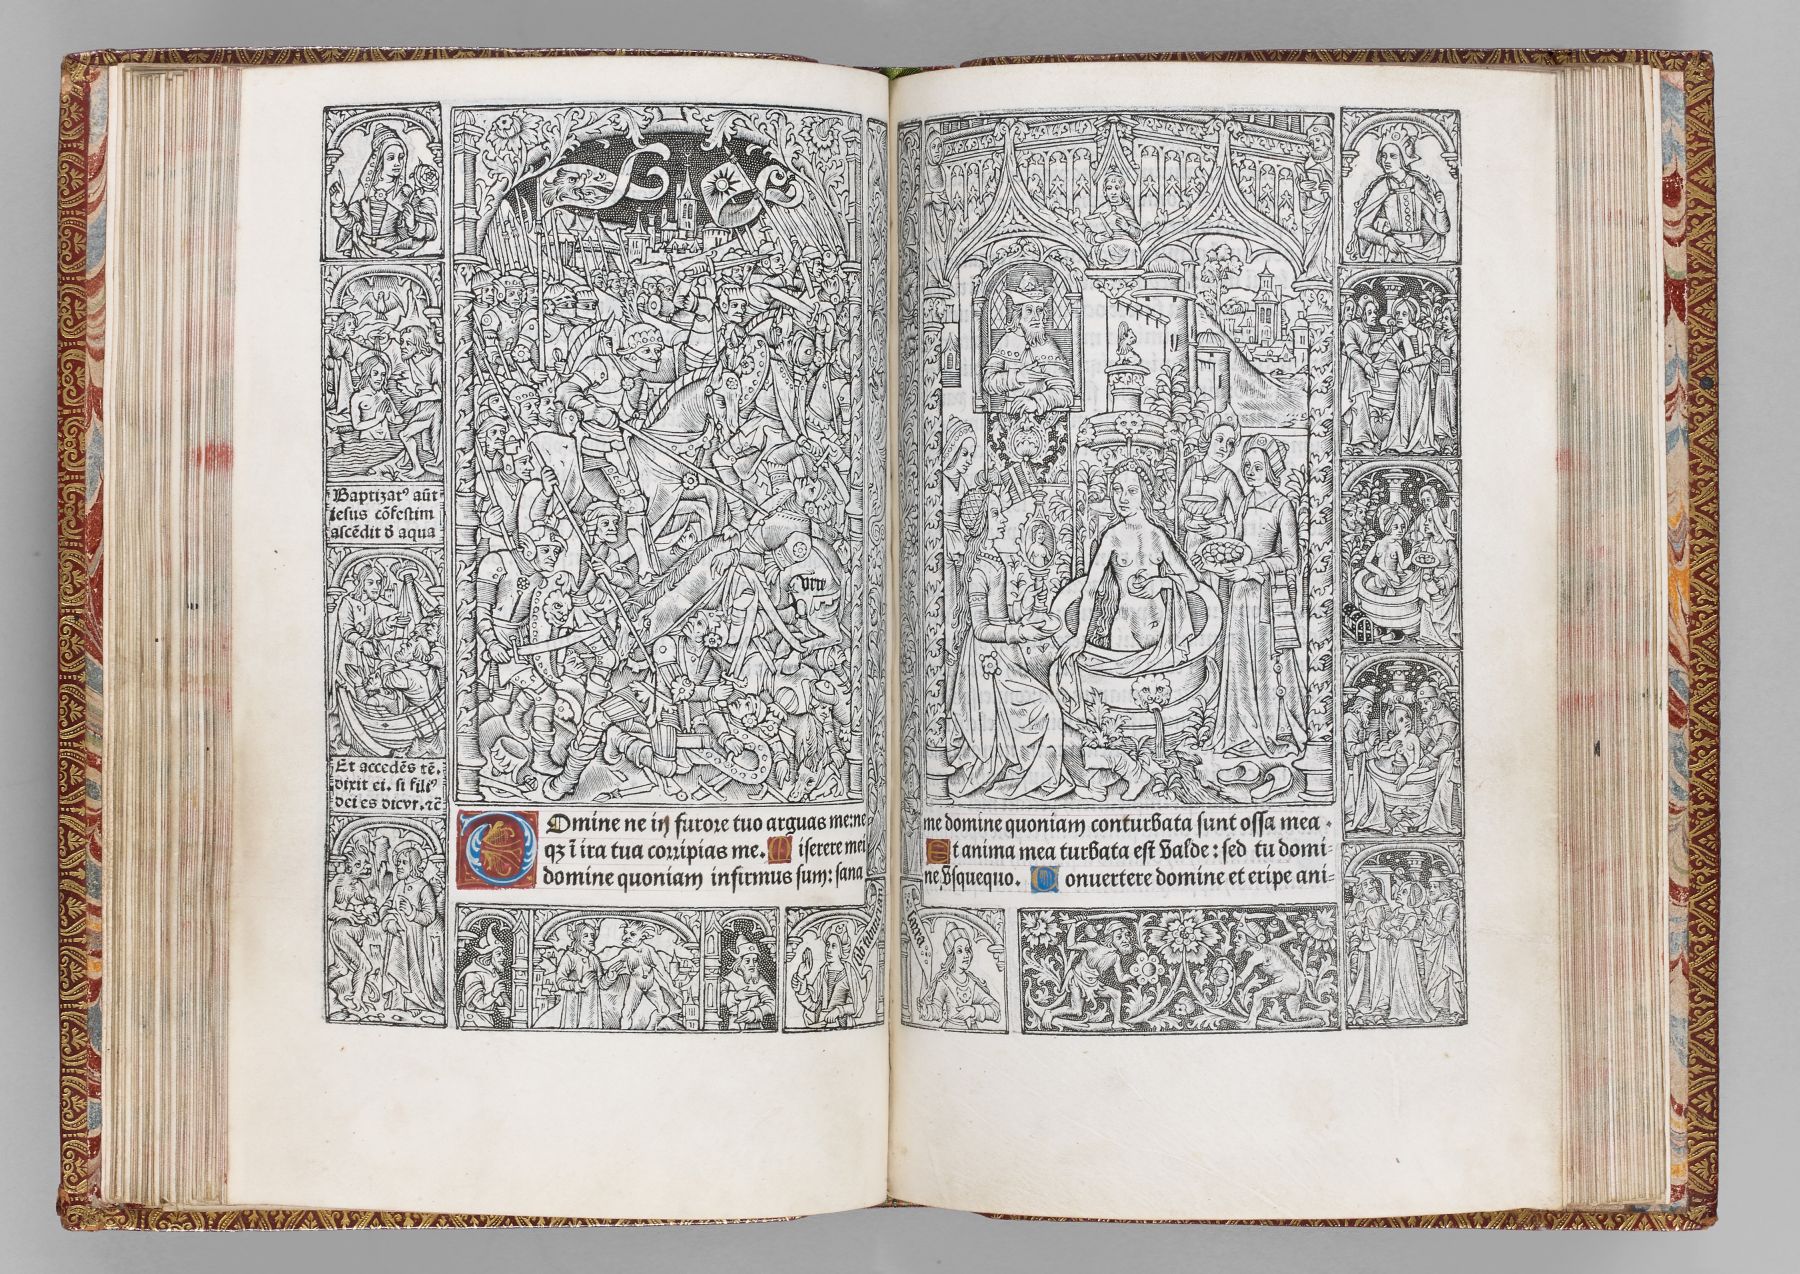 Baptizatꝰ aūt
Iesus cōfestim
ascēdit d̄ aqua
Et accedēs tē.
dixit ei. si filiꝰ
dei es dicvr. ⁊c̄
vrie
Domine ne in furore tuo arguas me: ne
qꝫ ī ira tua corripias me. Miserere mei
domine quoniam infirmus sum: sana
me domine quoniam conturbata sunt ossa mea.
Et anima mea turbata est valde: sed tu domi-
ne vsquequo. Conuertere domine et eripe ani-